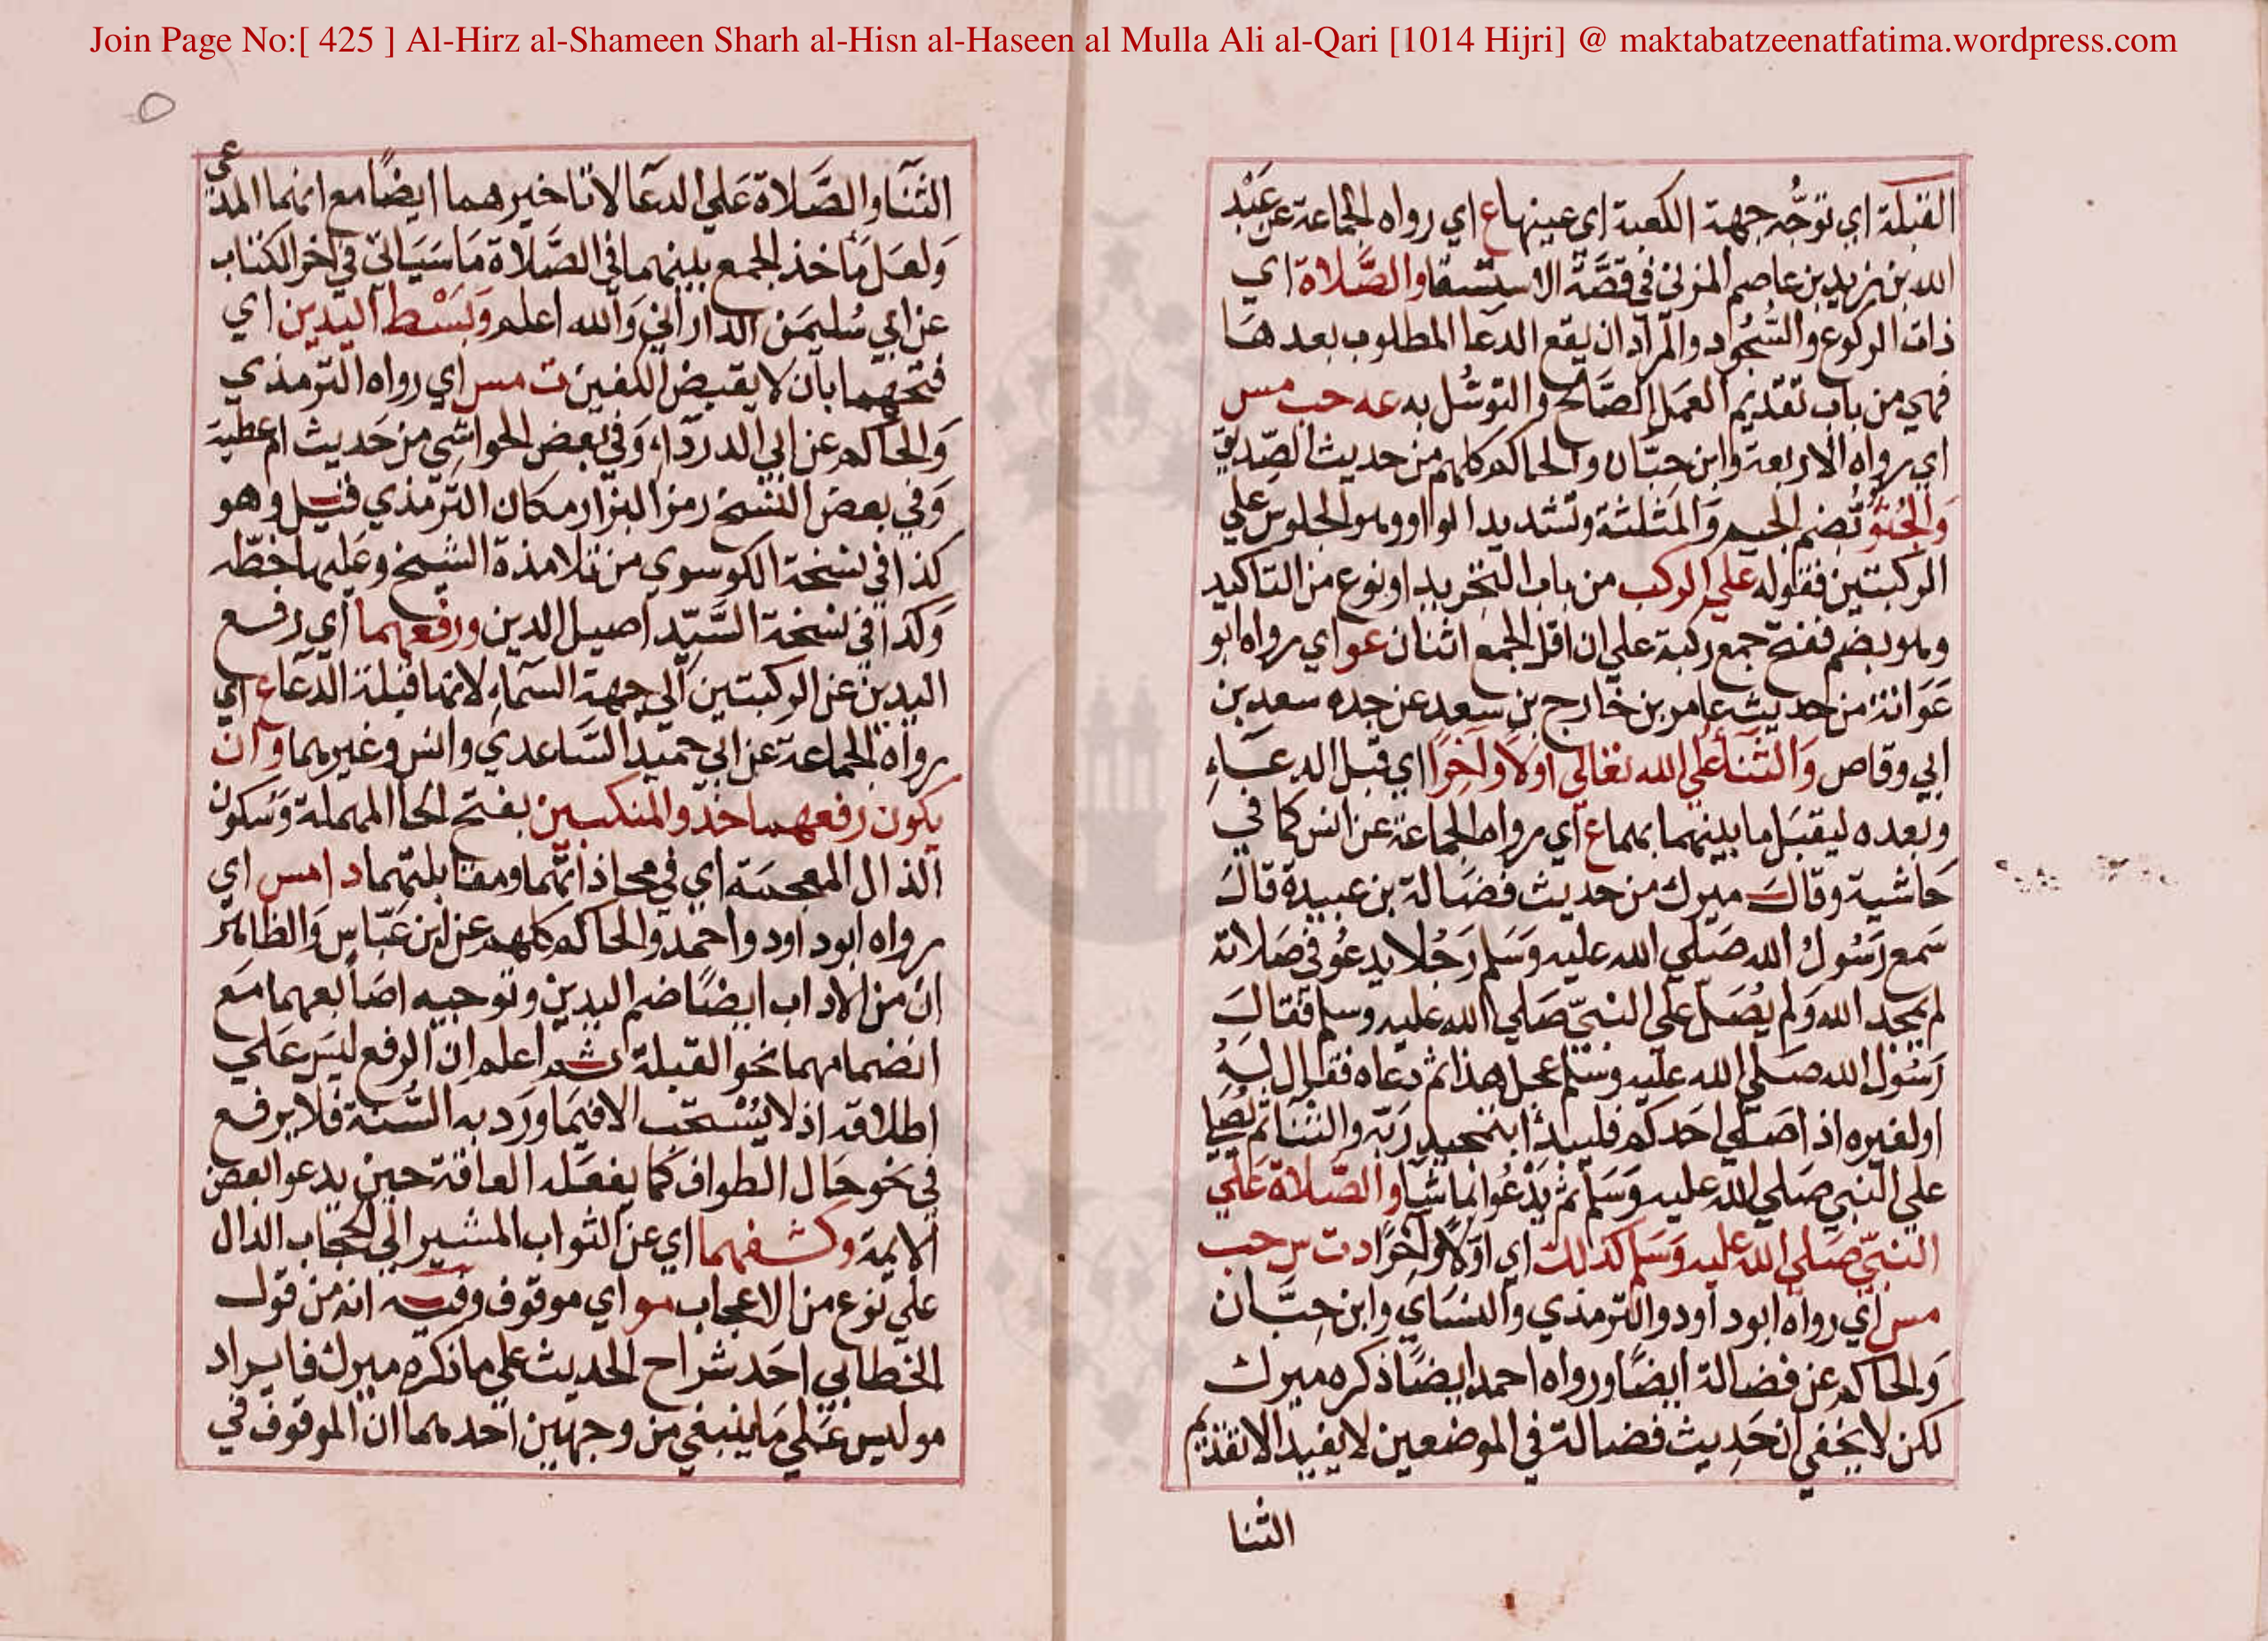 Join Page No:[ 425 ] Al-Hirz al-Shameen Sharh al-Hisn al-Haseen al Mulla Ali al-Qari [1014 Hijri] @ maktabatzeenatfatima.wordpress.com
القبلة اي توجُّه جهة الكعبة اي عينها ع اي رواه الجماعة عن عَبْد
الله بن زيد بن عاصم المزني في قصَّة الاستسقا والصَّلاة اي
ذات الركوع والسُّجُود والمراد ان يقع الدعا المطلوب بعدها
فهي من باب تقديم العمل الصَّالح والتوسُّل به عه حب مس
اي رواه الاربعة وابن حبَّان والحاكم كلهم من حديث الصّديق
وَالجُثُوّ بضم الجيم وَالمثلثة وتشديد الواو وهو الجلوس علي
الركبتين فقوله علي الركب من باب التجريد او نوع من التاكيد
وهو بضم ففتح جمع ركبة علي ان اقل الجمع اثنان عو اي رواه ابو
عَوانة من حديث عامر بن خارج بن سعد عن جده سعد بن
ابي وقاص وَالثَّنَا علي الله تعالي اولا واخِرًا اي قبل الدعَاءِ
وبعده ليقبَل ما بينهما بهما ع اي رواه الجماعة عن انس كما في
حَاشية وقال ميرك من حديث فضَالة بن عبيدة قالَ
سَمع رَسُولُ الله صَلي الله عليه وَسَلم رَجُلا يدعُو في صَلاته
لم يمجد الله وَلم يُصَلّ علي النبيّ صَلي الله عليه وسلم فقالَ
رَسُول الله صَلي الله عليه وسَلم عجل هذا ثم دعاه فقال لهُ
او لغيره اذا صَلي احَدكم فليبدأ بتمجيد رَبّه والثنا ثم يُصَلي
علي النبي صَلي الله عليه وَسَلم ثم يَدْعُوا بما شا والصَّلاة عَلي
النبيّ صَلي الله عليه وَسَلم كذلك اي اوّلاً واخِرًا د ت س حب
مس اي رواه ابو داود والترمذي والنسَاي وابن حِبَّان
وَالحاكم عن فضالة ايضًا ورواه احمد ايضًا ذكره ميرك
لكن لا يخفي ان حَدِيث فضالة في الموضعين لا يفيد الا تقديم
الثنا
الثَّنَا والصَّلاة عَلي الدعَا لا تاخيرهما ايضًا مع انهما المدعي
وَلعَل مَأخذ الجمع بينهما في الصَّلاة مَا سَيَاتي في اخر الكتاب
عن ابي سُليمَن الداراني وَالله اعلم وَبَسْط اليدين اي
فتحهما بان لا يقبض الكفين ت مس اي رواه الترمذي
وَالحاكم عن ابي الدرداء وَفي بعض الحواشي من حَديث ام عطية
وَفي بعض النسخ رمز البزار مكان الترمذي قيل وهو
كذا في نسخة الكوسوي من تلامذة الشيخ وعَليها خطّه
وَكذا في نسخة السَّيّد اصيل الدين ورفعهما اي رفع
اليدين عن الركبتين الي جهة السَّماءِ لانها قبلة الدعَا ع اي
رواه الجماعة عن ابي حميد السَّاعدي وانس وغيرهما وان
يكون رفعهما حذو المنكبين بفتح الحا المهملة وَسكون
الذال المعجمة اي في محاذاتهما ومقابلتهما د ا مس اي
رواه ابو داود واحمد والحاكم كلهم عن ابن عَبّاسٍ وَالظاهر
ان من الاداب ايضًا ضم اليدين وتوجيه اصَابعهما مَع
انضمامهما نحو القبلة ثم اعلم ان الرفع ليسَ عَلي
اطلاقه اذ لا يُسْتحَب الا فيمَا ورَد به السُّنة فلا يرفع
في نحو حَال الطواف كما يفعَله العامة حين يدعو ابعض
الايمة وكشفهما اي عن الثواب المشير الي الحجاب الدال
علي نوع من الاعجاب مو اي موقوف وفيه انه من قول
الخطابي احَد شراح الحديث علي ما ذكره ميرك فايراد
مو ليس عَلي مَا ينبغي من وجهين احدهما ان الموقوف في